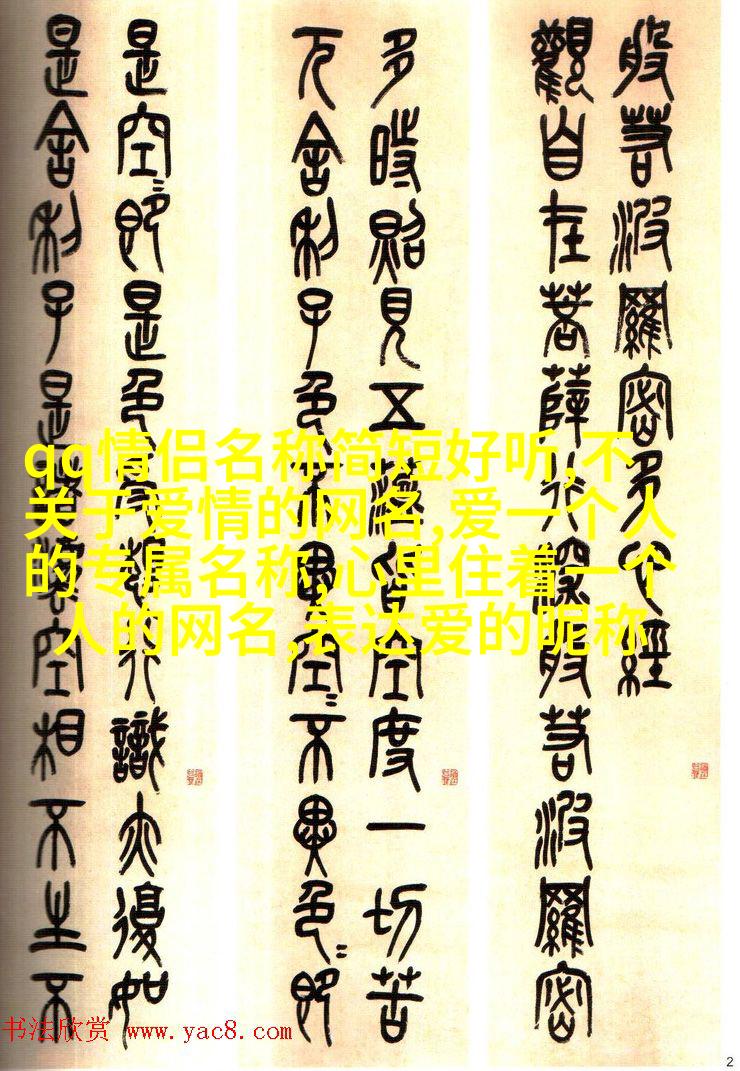 般若波羅密多心經
觀自在菩薩行深般若波羅密
多時照見五蘊皆空度一切苦
厄舍利子色不異空〻不異色〻即
是空〻即是色受想行識亦復如
是舍利子是諸法空相不生不
qq情侣名称简短好听,不
关于爱情的网名,爱一个人
的专属名称,心里住着一个
人的网名,表达爱的昵称
书法欣赏 www.yac8.com
2